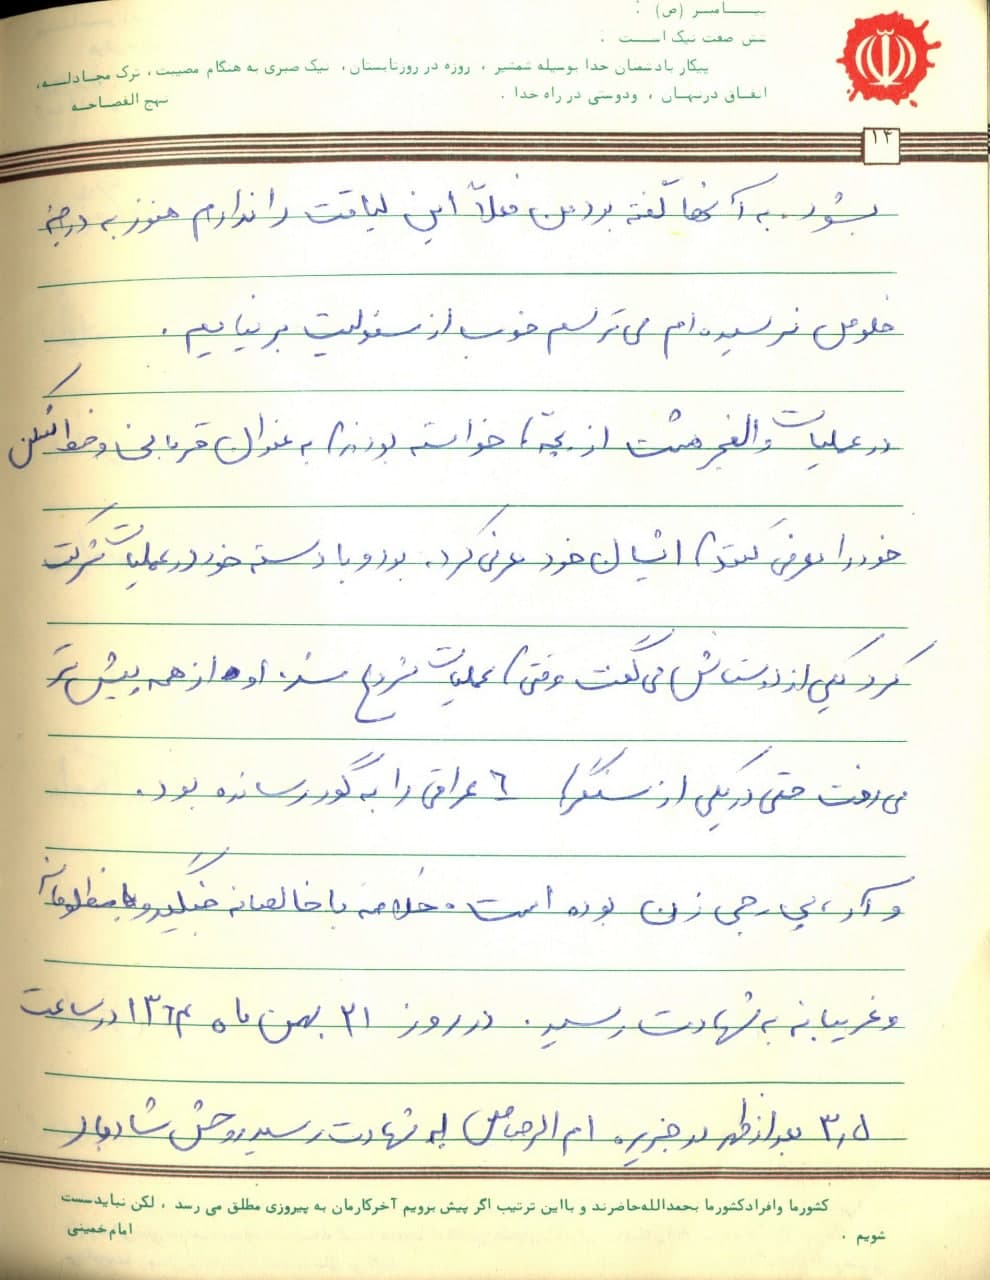 پیامبر (ص) :
شش صفت نیک است .
پیکار با دشمنان خدا بوسیله شمشیر ، روزه در روز تابستان ، نیک صبری به هنگام مصیبت ، ترک مجادله ،
انفاق در نهان ، و دوستی در راه خدا .
نهج الفصاحه
۱۴
بشود . به آنها گفته بود من فعلاً این لیاقت را ندارم هنوز به درجهٔ
خلوص نرسیده‌ام می‌ترسم خوب از مسئولیت بر نیایم .
در عملیات والفجر هشت از بچه‌ها خواسته بودند به عنوان قربانی و خط شکن
خود را معرفی کنند ایشان خود معرفی کرده بود و با دسته خود در عملیات شرکت
کرد یکی از دوستانش می‌گفت وقتی عملیات شروع شد او از همه پیش تر
می‌رفت حتی در یکی از سنگرها ۶ عراقی را به گور رسانده بود .
و آر ، پی ، جی زن بوده است . خلاصه با خالصانه جنگید و مظلومانه
و غریبانه به شهادت رسید . در روز ۲۱ بهمن ماه ۱۳۶۴ در ساعت
۳٫۵ بعد از ظهر در جزیره ام الرصاص به شهادت رسید روحش شاد باد
کشور ما و افراد کشور ما بحمدالله حاضرند و با این ترتیب اگر پیش برویم آخر کارمان به پیروزی مطلق می رسد ، لکن نباید سست
شویم .
امام خمینی